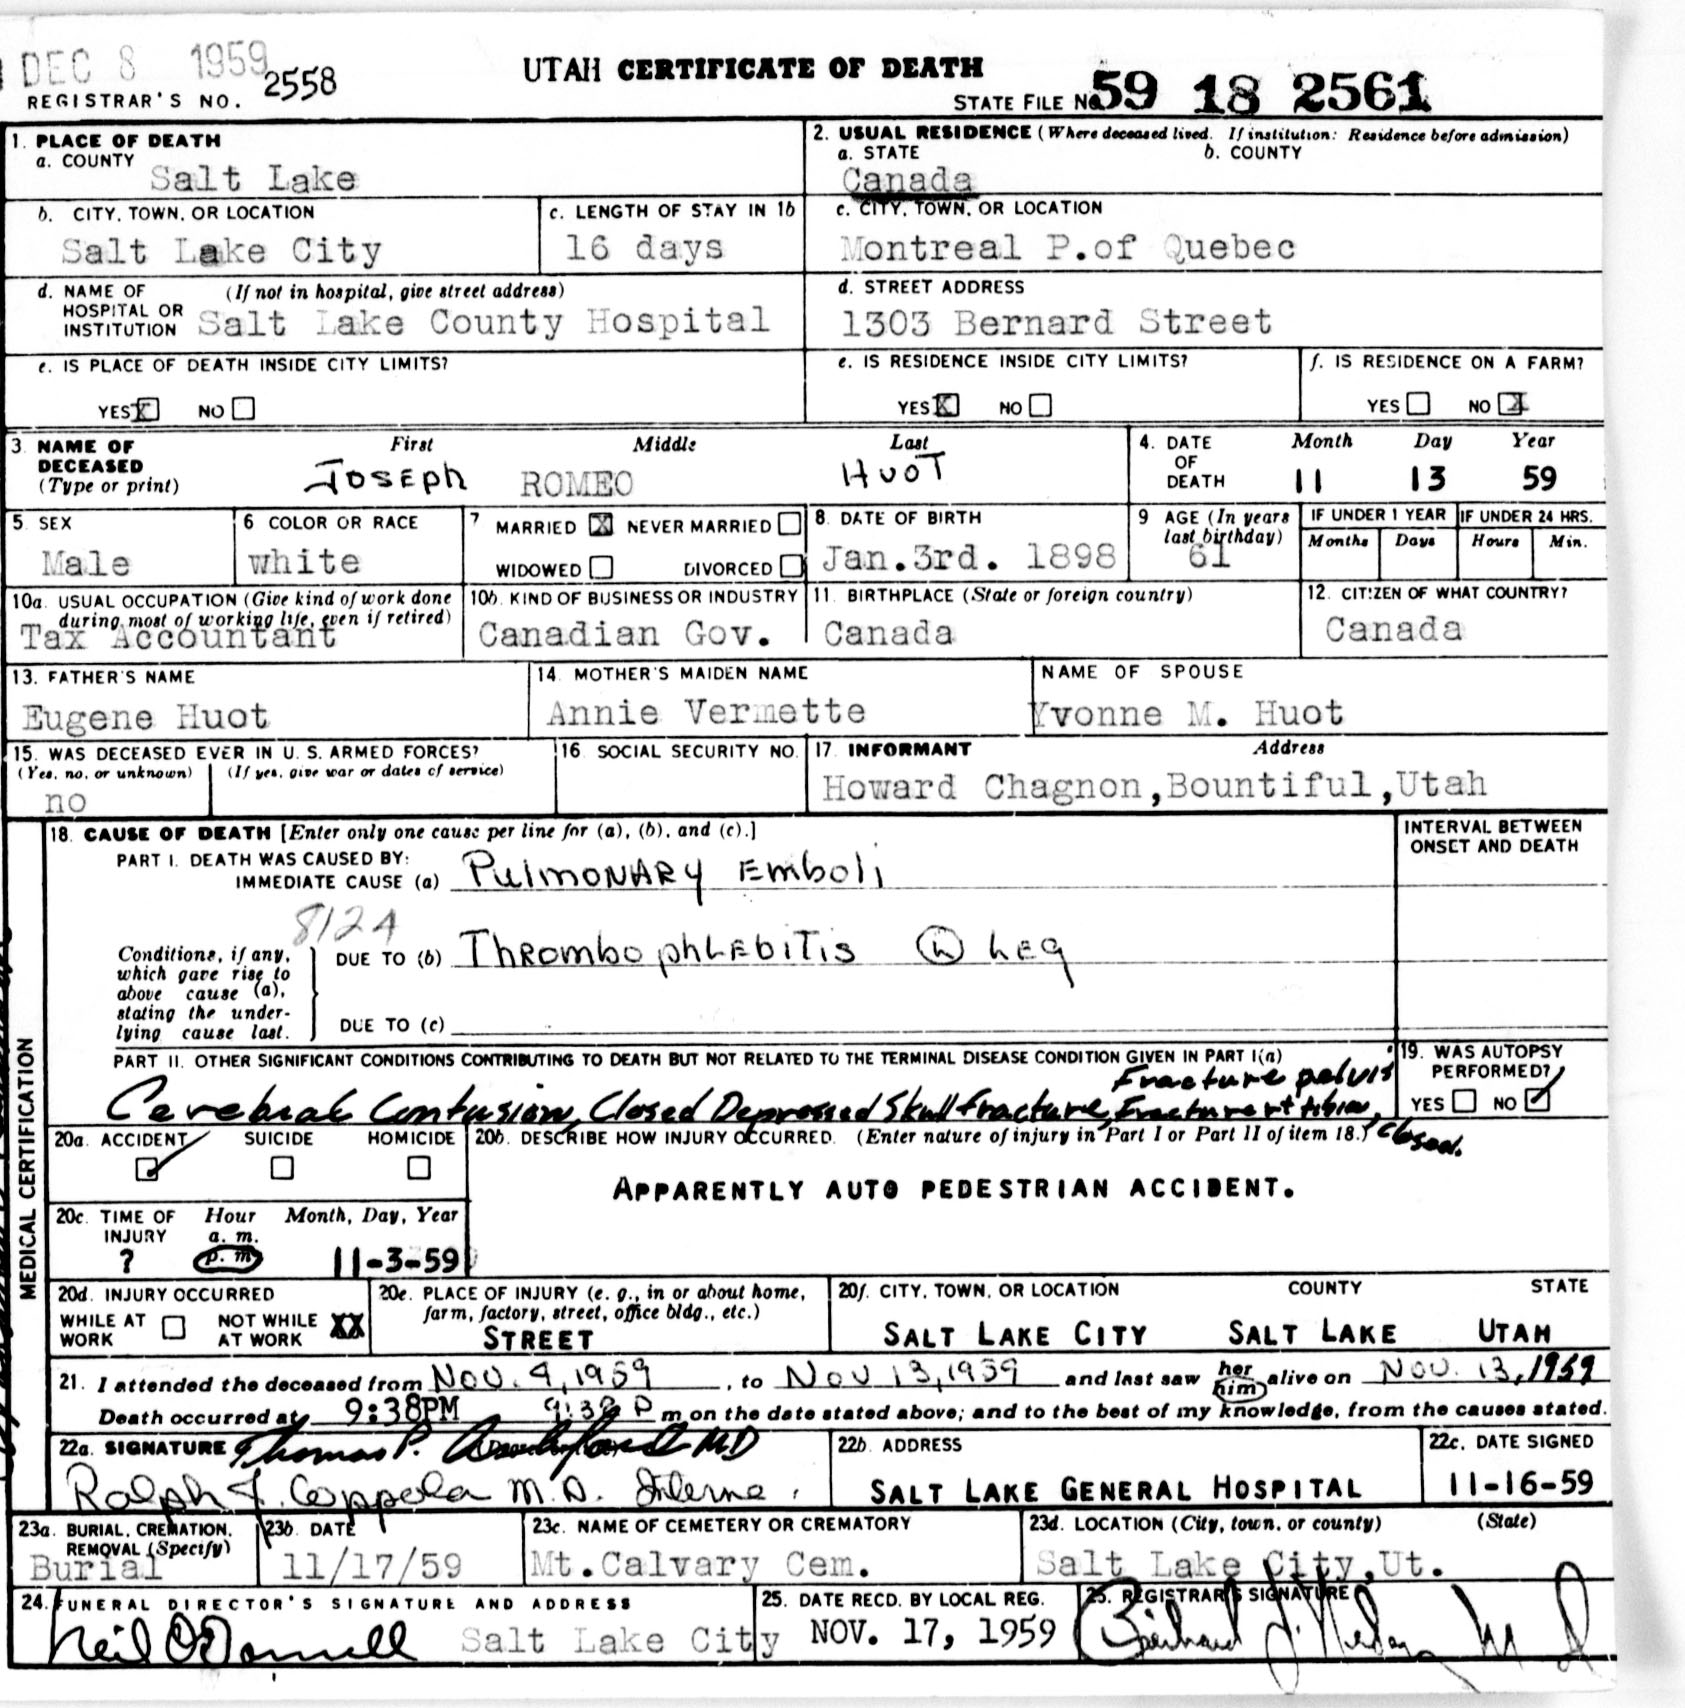 DEC 8 1959
UTAH CERTIFICATE OF DEATH
REGISTRAR'S NO. 2558
STATE FILE No. 59 18 2561
1. PLACE OF DEATH
a. COUNTY
Salt Lake
2. USUAL RESIDENCE (Where deceased lived. If institution: Residence before admission)
a. STATE b. COUNTY
Canada
b. CITY, TOWN, OR LOCATION
Salt Lake City
c. LENGTH OF STAY IN 1b
16 days
c. CITY, TOWN, OR LOCATION
Montreal P.of Quebec
d. NAME OF (If not in hospital, give street address)
HOSPITAL OR
INSTITUTION Salt Lake County Hospital
d. STREET ADDRESS
1303 Bernard Street
e. IS PLACE OF DEATH INSIDE CITY LIMITS?
YES X NO
e. IS RESIDENCE INSIDE CITY LIMITS?
YES X NO
f. IS RESIDENCE ON A FARM?
YES NO X
3. NAME OF DECEASED (Type or print)
First Middle Last
JOSEPH ROMEO HUOT
4. DATE OF DEATH
Month Day Year
11 13 59
5. SEX
Male
6 COLOR OR RACE
white
7 MARRIED X NEVER MARRIED
WIDOWED DIVORCED
8. DATE OF BIRTH
Jan.3rd. 1898
9 AGE (In years last birthday)
61
IF UNDER 1 YEAR
Months Days
IF UNDER 24 HRS.
Hours Min.
10a. USUAL OCCUPATION (Give kind of work done
during most of working life, even if retired)
Tax Accountant
10b. KIND OF BUSINESS OR INDUSTRY
Canadian Gov.
11. BIRTHPLACE (State or foreign country)
Canada
12. CITIZEN OF WHAT COUNTRY?
Canada
13. FATHER'S NAME
Eugene Huot
14. MOTHER'S MAIDEN NAME
Annie Vermette
NAME OF SPOUSE
Yvonne M. Huot
15. WAS DECEASED EVER IN U. S. ARMED FORCES?
(Yes, no, or unknown) (If yes, give war or dates of service)
no
16. SOCIAL SECURITY NO.
17. INFORMANT Address
Howard Chagnon,Bountiful,Utah
MEDICAL CERTIFICATION
18. CAUSE OF DEATH [Enter only one cause per line for (a), (b), and (c).]
INTERVAL BETWEEN
ONSET AND DEATH
PART I. DEATH WAS CAUSED BY:
IMMEDIATE CAUSE (a) Pulmonary Emboli
812A
Conditions, if any,
which gave rise to
above cause (a),
stating the under-
lying cause last.
DUE TO (b) Thrombophlebitis (L) Leg
DUE TO (c)
PART II. OTHER SIGNIFICANT CONDITIONS CONTRIBUTING TO DEATH BUT NOT RELATED TO THE TERMINAL DISEASE CONDITION GIVEN IN PART I(a)
Fracture pelvis
Cerebral Contusion, Closed Depressed Skull fracture, Fracture rt tibia, closed.
19. WAS AUTOPSY
PERFORMED?
YES NO
20a. ACCIDENT SUICIDE HOMICIDE
20b. DESCRIBE HOW INJURY OCCURRED. (Enter nature of injury in Part I or Part II of item 18.)
APPARENTLY AUTO PEDESTRIAN ACCIDENT.
20c. TIME OF INJURY
Hour Month, Day, Year
a. m.
? p. m 11-3-59
20d. INJURY OCCURRED
WHILE AT WORK NOT WHILE AT WORK XX
20e. PLACE OF INJURY (e. g., in or about home,
farm, factory, street, office bldg., etc.)
STREET
20f. CITY, TOWN, OR LOCATION COUNTY STATE
SALT LAKE CITY SALT LAKE UTAH
21. I attended the deceased from Nov. 4, 1959, to Nov 13, 1959 and last saw her him alive on Nov. 13, 1959
Death occurred at 9:38PM 9:38 P m on the date stated above; and to the best of my knowledge, from the causes stated.
22a. SIGNATURE Thomas P. MD
Ralph J. Coppola M.D. Interne
22b. ADDRESS
SALT LAKE GENERAL HOSPITAL
22c. DATE SIGNED
11-16-59
23a. BURIAL, CREMATION,
REMOVAL (Specify)
Burial
23b. DATE
11/17/59
23c. NAME OF CEMETERY OR CREMATORY
Mt.Calvary Cem.
23d. LOCATION (City, town, or county) (State)
Salt Lake City,Ut.
24. FUNERAL DIRECTOR'S SIGNATURE AND ADDRESS
Neil O'Donnell Salt Lake City
25. DATE RECD. BY LOCAL REG.
NOV. 17, 1959
25. REGISTRAR'S SIGNATURE